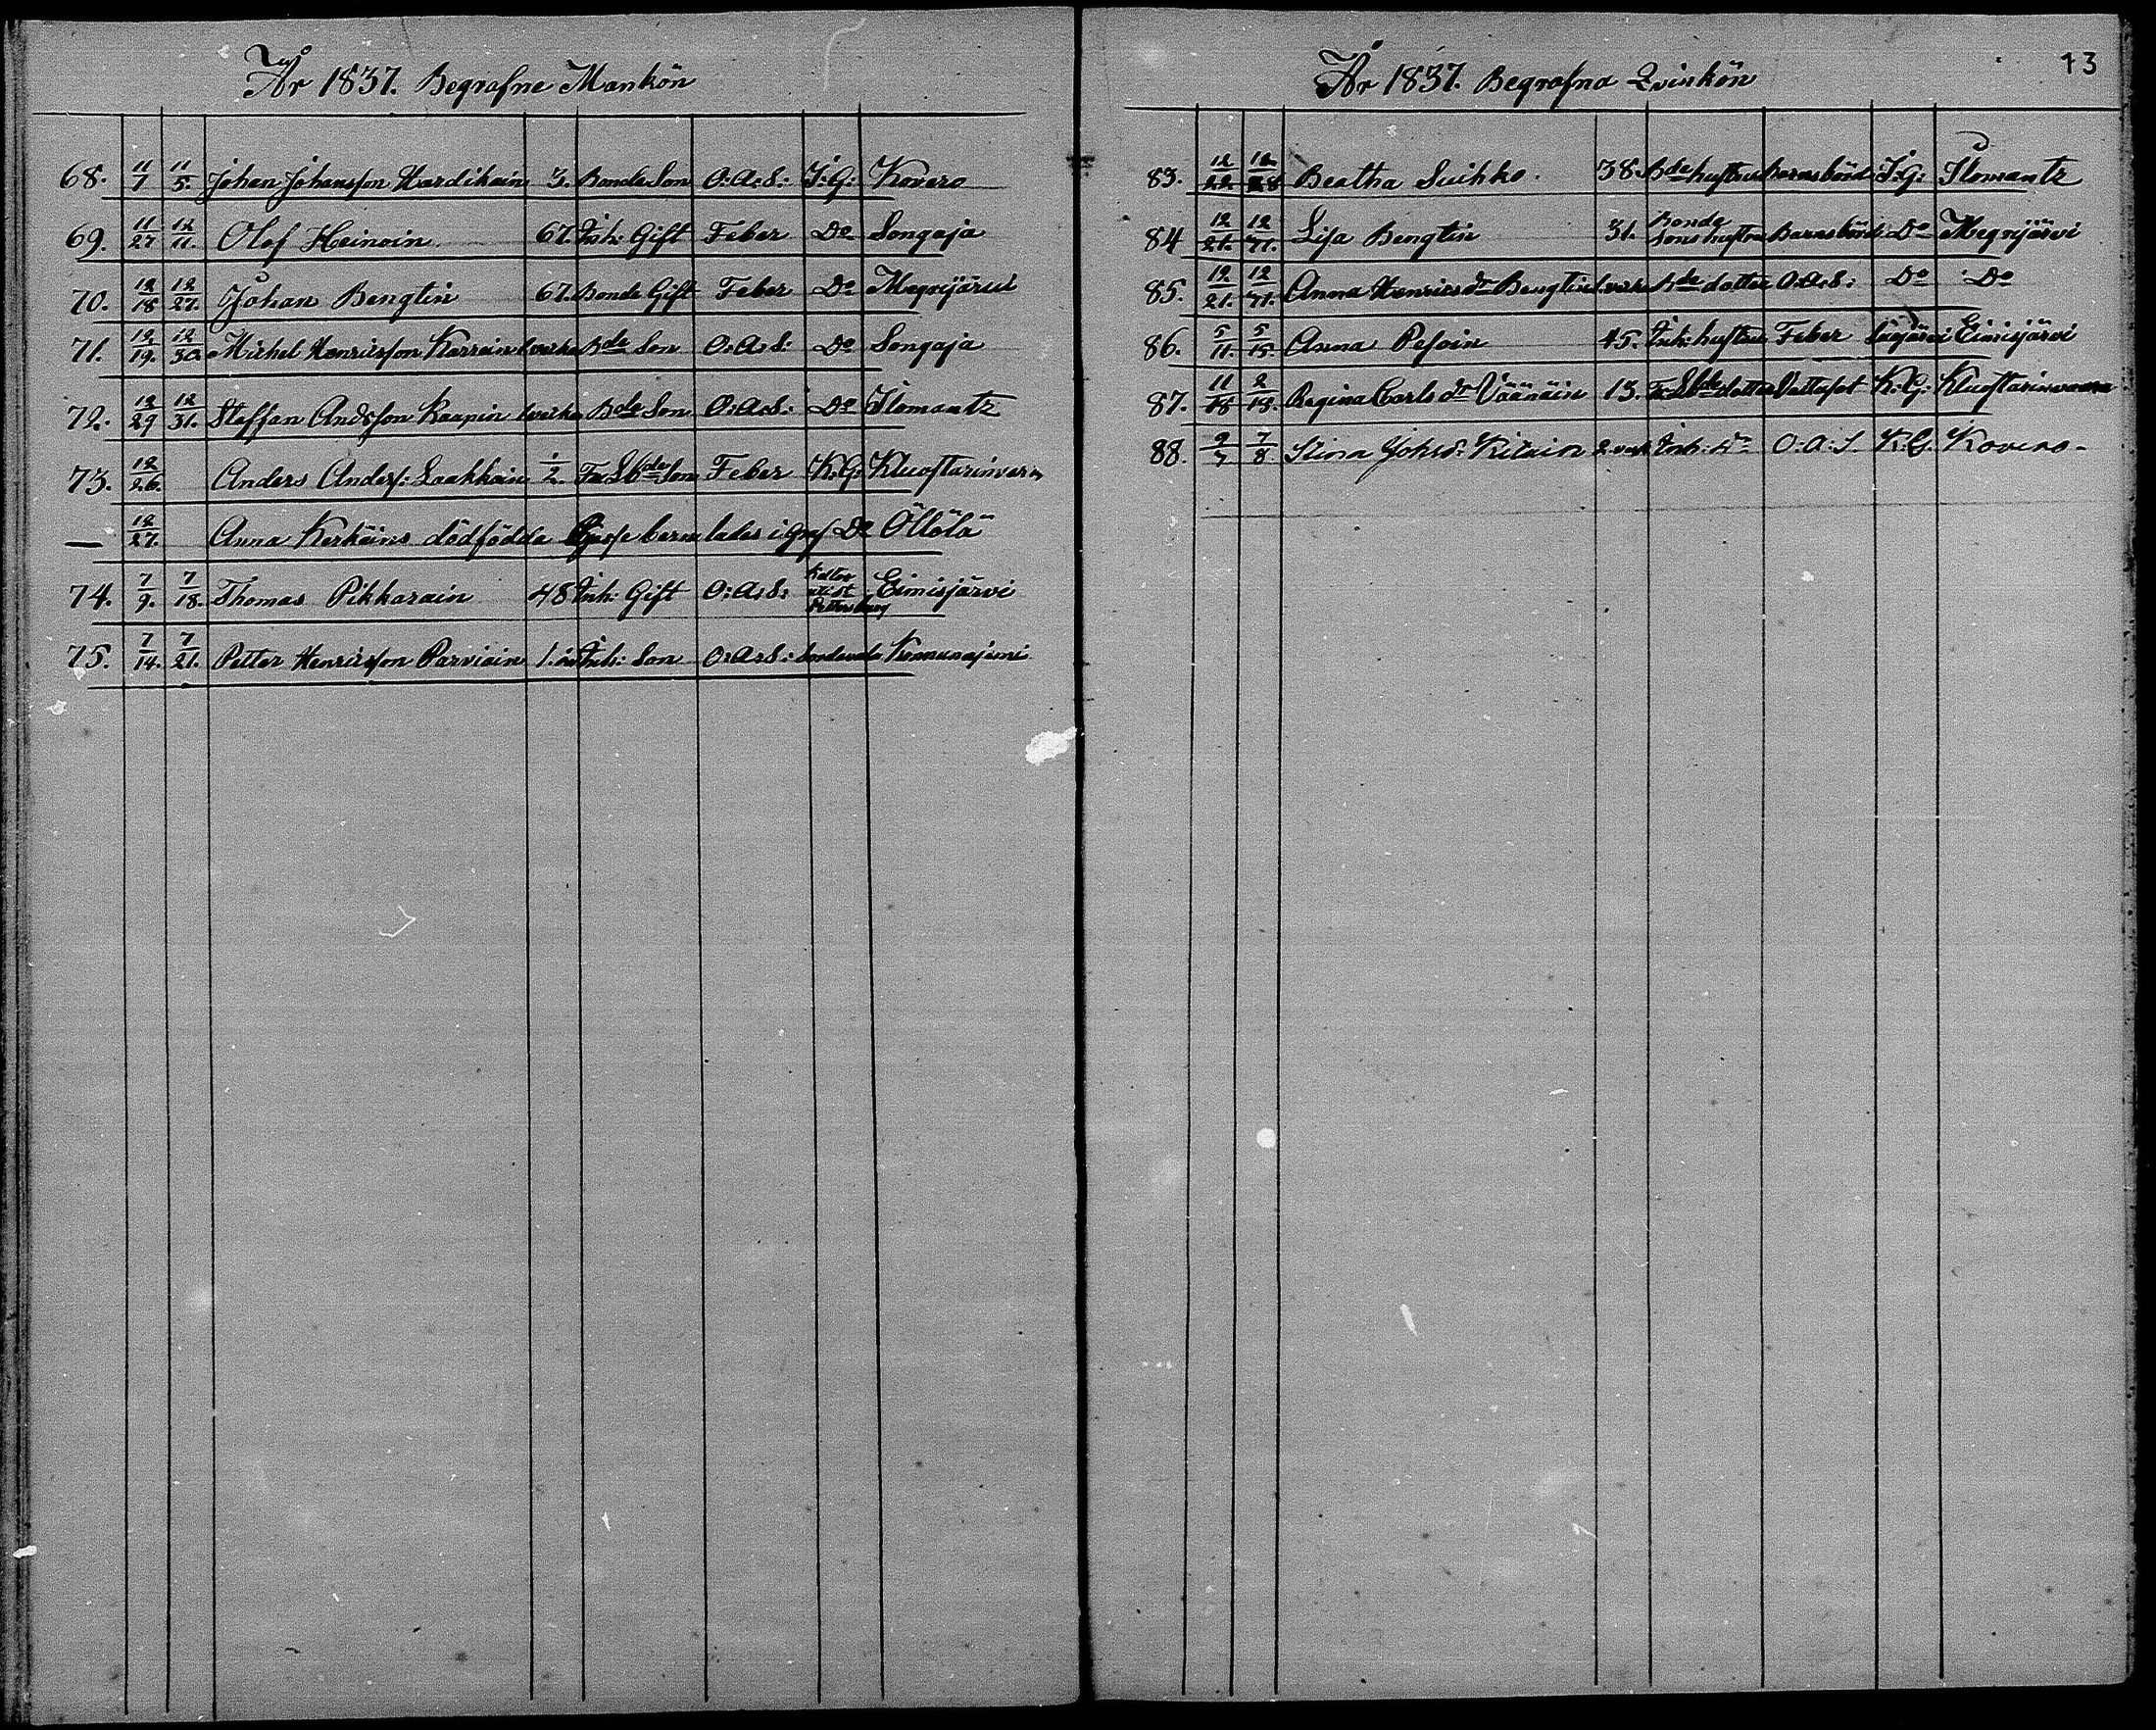 År 1837. Begrafne Mankön
68. 11/7 11/5. Johan Johansson Hardikain 3. Bonde Son O:A:S: I:G: Kovero
69. 11/27 12/11. Olof Heinoin 67. Inh: Gift Feber Do Songaja
70. 12/18 12/27. Johan Bengtin 67. Bonde Gift Feber Do Megrijärvi
71. 12/19. 12/30. Michel Henricsson Karrain 1 vecka Bde Son O:A:S: Do Songaja
72. 12/29 12/31. Staffan Andsson Kaapin 1 vecka Bde Son O:A:S: Do Ilomantz
73. 12/26. Anders Anders: Laakkain 1/2. Fr. Lbde Son Feber K:G: Kluostarinvara
— 12/27. Anna Kerkäins dödfödde Gosse lades i Graf Do Öllölä
74. 7/9. 7/18. Thomas Pikkarain 48 Inh: Gift O:A:S: Eimisjärvi
75. 7/14. 7/21. Petter Henricsson Parviain 1. Inh: Son O:A:S: Sordavala
År 1837. Begrafna Qvinkön
13
83. 12/22. 12/28 Beatha Suihko. 38. Bde hustru Barnsbörd I:G: Ilomantz
84 12/21. Lisa Bengtin 31. Bonde Sons hustru Barnsbörd Do Megrijärvi
85. 12/21. Anna Henrics dr Bengtin Bde dotter O:A:S: Do Do
86. 5/11. 5/15. Anna Pesoin 45. Inh: hustru Feber Eimisjärvi
87. 11/18 Regina Carls dr Väänäin 13. Fr Lbde dotter Vattusot K:G: Kluostarinvaara
88. 2/7 7/8 Stina Johsd: Kitain 2. veck Inh: Dr O:A:S. K:G. Kovero-